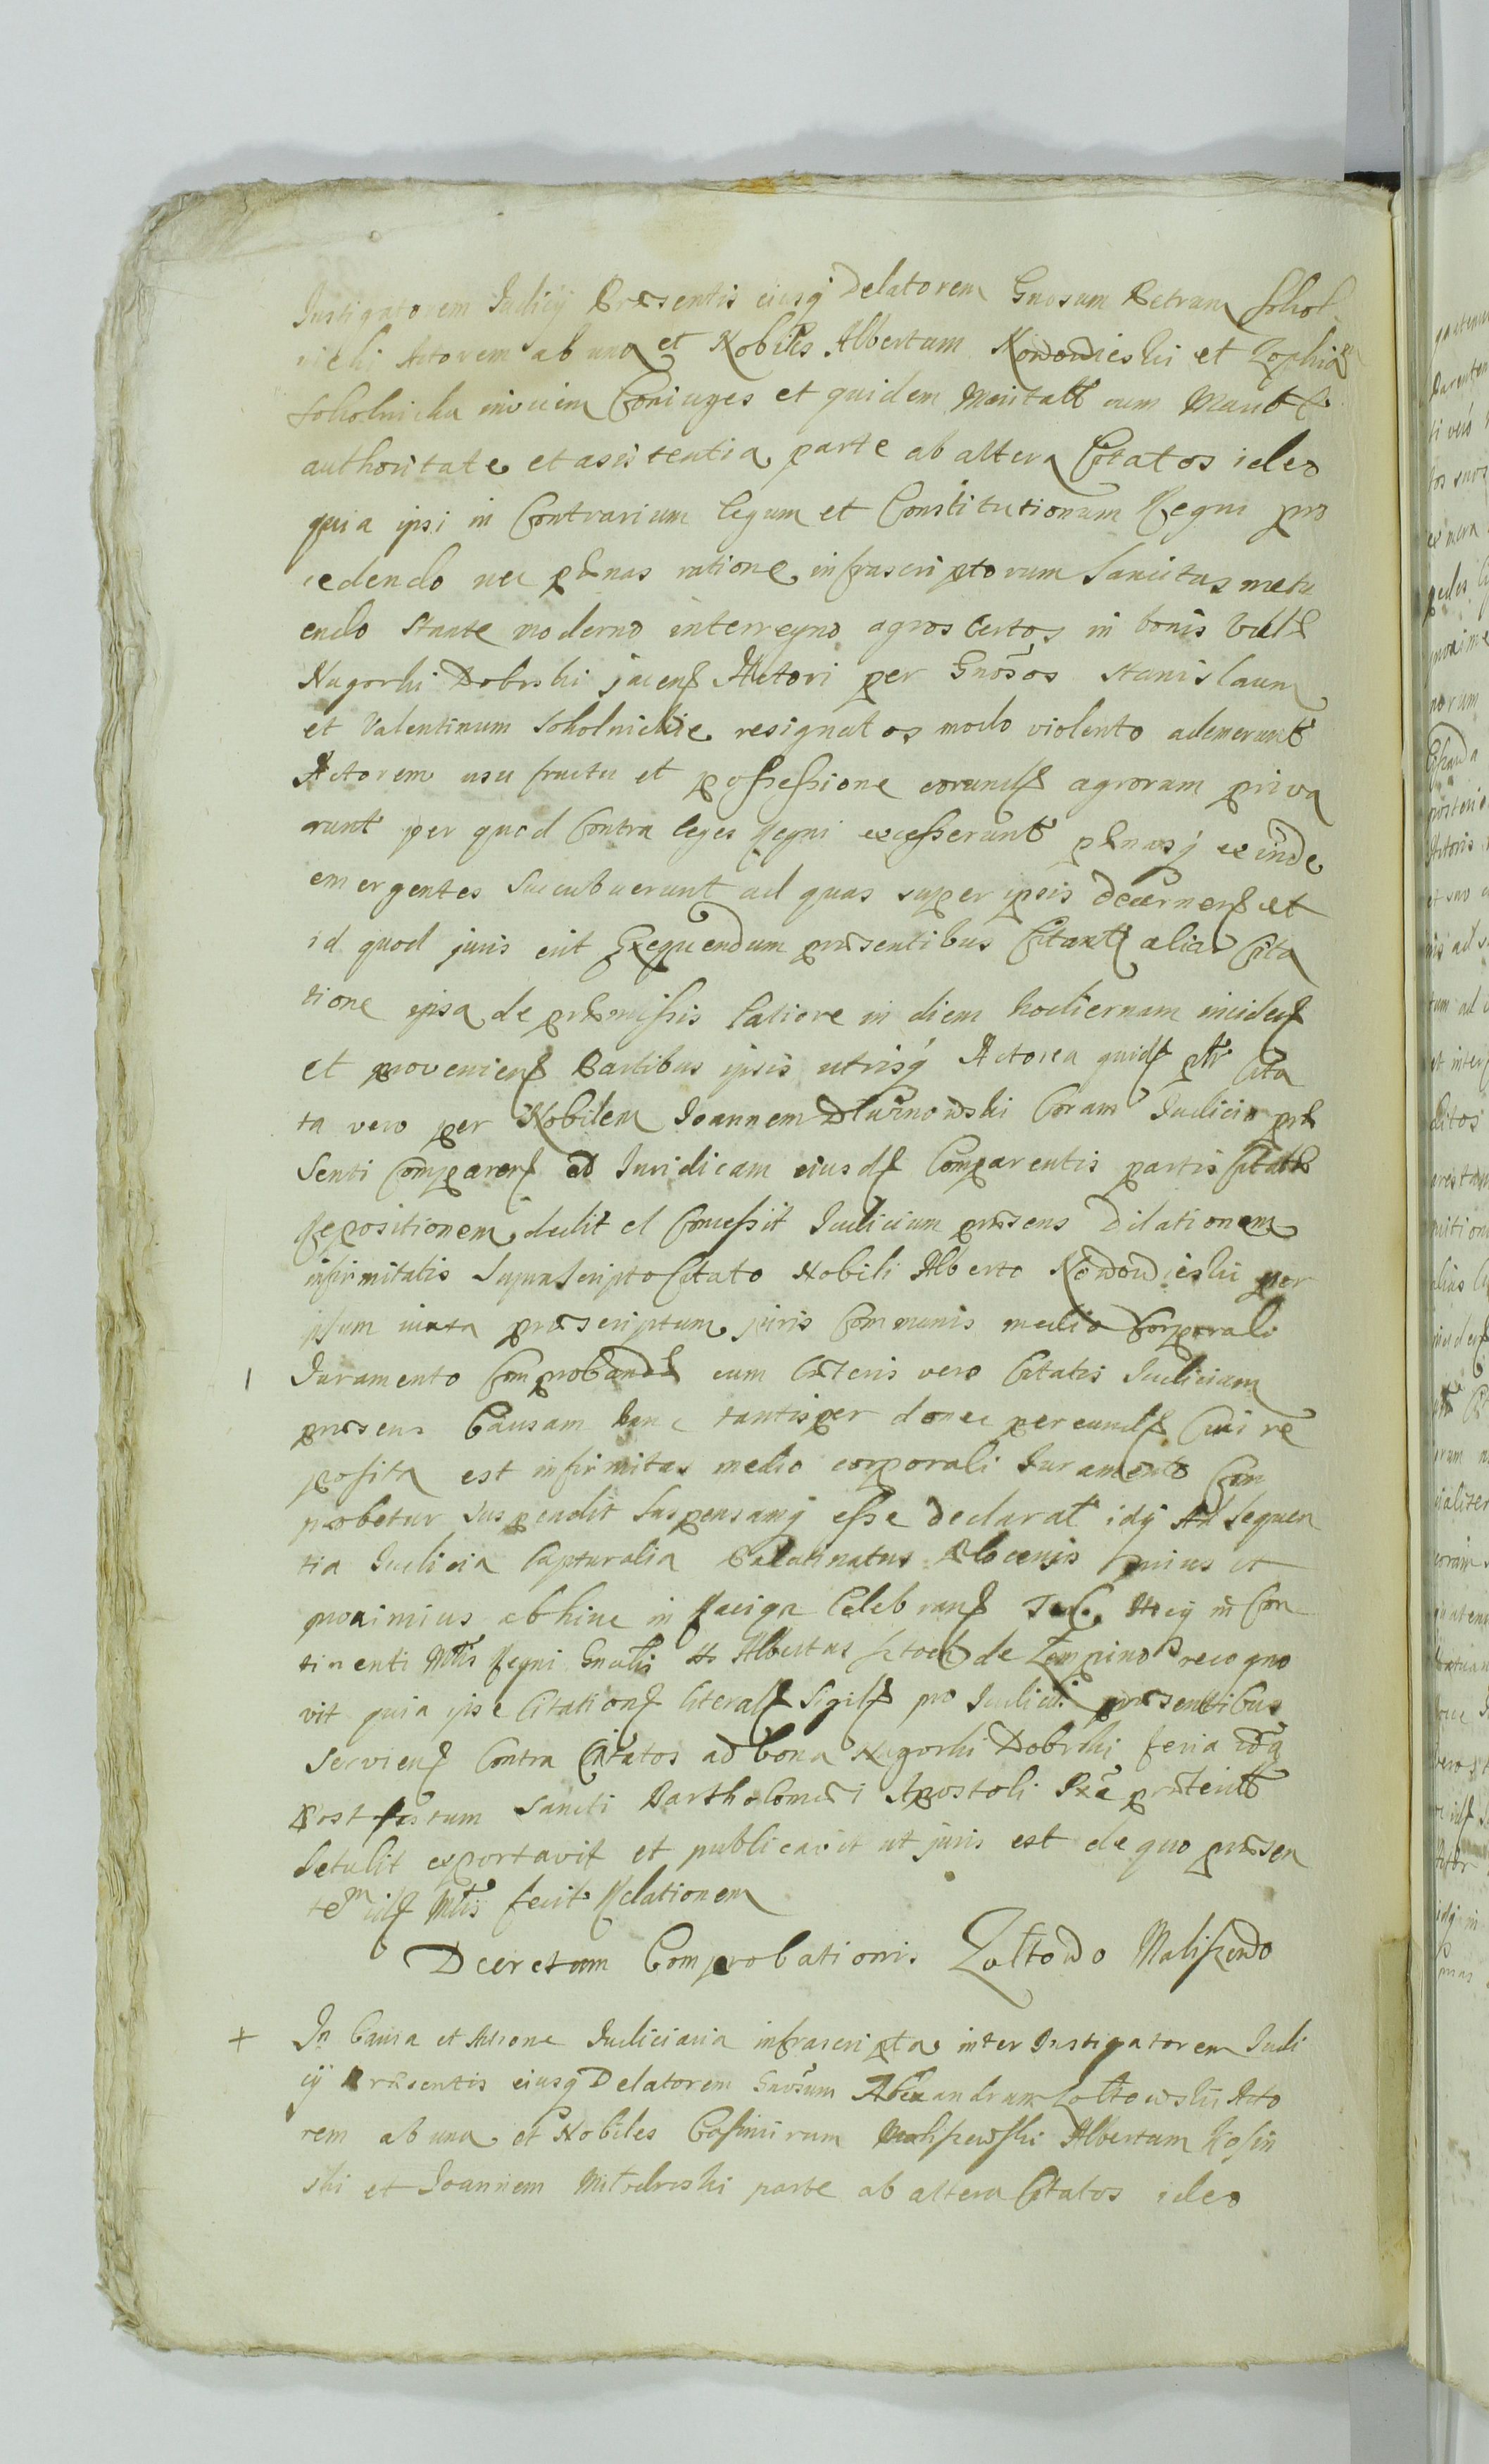 Instigatorem Iudicij Præsentis eiusq Delatorem Gnosum Petrum Sokol
nicki Actorem ab una et Nobiles Albertum Nowowieski et Zophia
Sokolnicka invicem Coniuges et quidem Maritatt cum Marit
authoritate et asistentia parte ab altera Citatos ideo
quia ipsi in Contrarium legum et Constitutionum Regni pro
cedendo nec pænas ratione infrascriptorum Sancitas metu
endo Stante moderno interregno agros Certos in bonis
Nagorki Dobrski jacen Actori per Gnosos Stanislaum
et Valentinum Sokolnickie resignatos modo violento ademerunt
Actorem usu fructu et possessione eorund agrorum priva
runt per quod Contra leges Regni excesserunt pænasq exinde
emergentes Succubuerunt ad quas super ipsis decernen et
id quod juris erit Exequendum præsentibus Citant alias Cita
tione ipsa de præmissis latiore in diem hodiernam inciden
et provenien Partibus ipsis utrisq Actorea quid ptr Cita
ta vero per Nobilem Joannem Coram Iudicio præ
senti Comparen ad Iuridicam eiusd Comparentis partis Citatæ
Repositionem dedit et Concessit Iudicium præsens Dilationem
infirmitatis Suprascripto Citato Nobili Alberto Nowowieski per
ipsum iuxta præscriptum juris Communis medio Corporali
Iuramento Comproband cum Cæteris vero Citatis Iudicium
præsens Causam hanc tantisper donec per eund Cui re
posita est infirmitas medio corporali Iuramento Com
probetur suspendit Suspensamq esse declarat idq Ad Sequen
tia Iudicia Capturalia Palatinatus Plocensis prius et
proximius abhinc in Raciąz Celebran in Con
tinenti Mtis Regni Gnalis Albertus de Zempino recogno
vit quia ipse Citation literal Sigil pro Iudicii præsentibus
Servien Contra Citatos ad bona Nagorki Dobrski feria
post festum Sancti Bartholomæi Apostoli præterit
detulit exportavit et publicavit ut juris est de quo præsen
tem Mtis fecit Relationem
Decretum Comprobationis Zołtowo Maliszewo
+ In Causa et Actione Iudiciaria infrascripta inter Instigatorem Iudi
cij Præsentis eiusq Delatorem Gnosum Alexandrum Zołtowski Acto
rem ab una et Nobiles Casimirum Maliszewski Albertum Kosin
ski et Joannem parte ab altera Citatos ideo